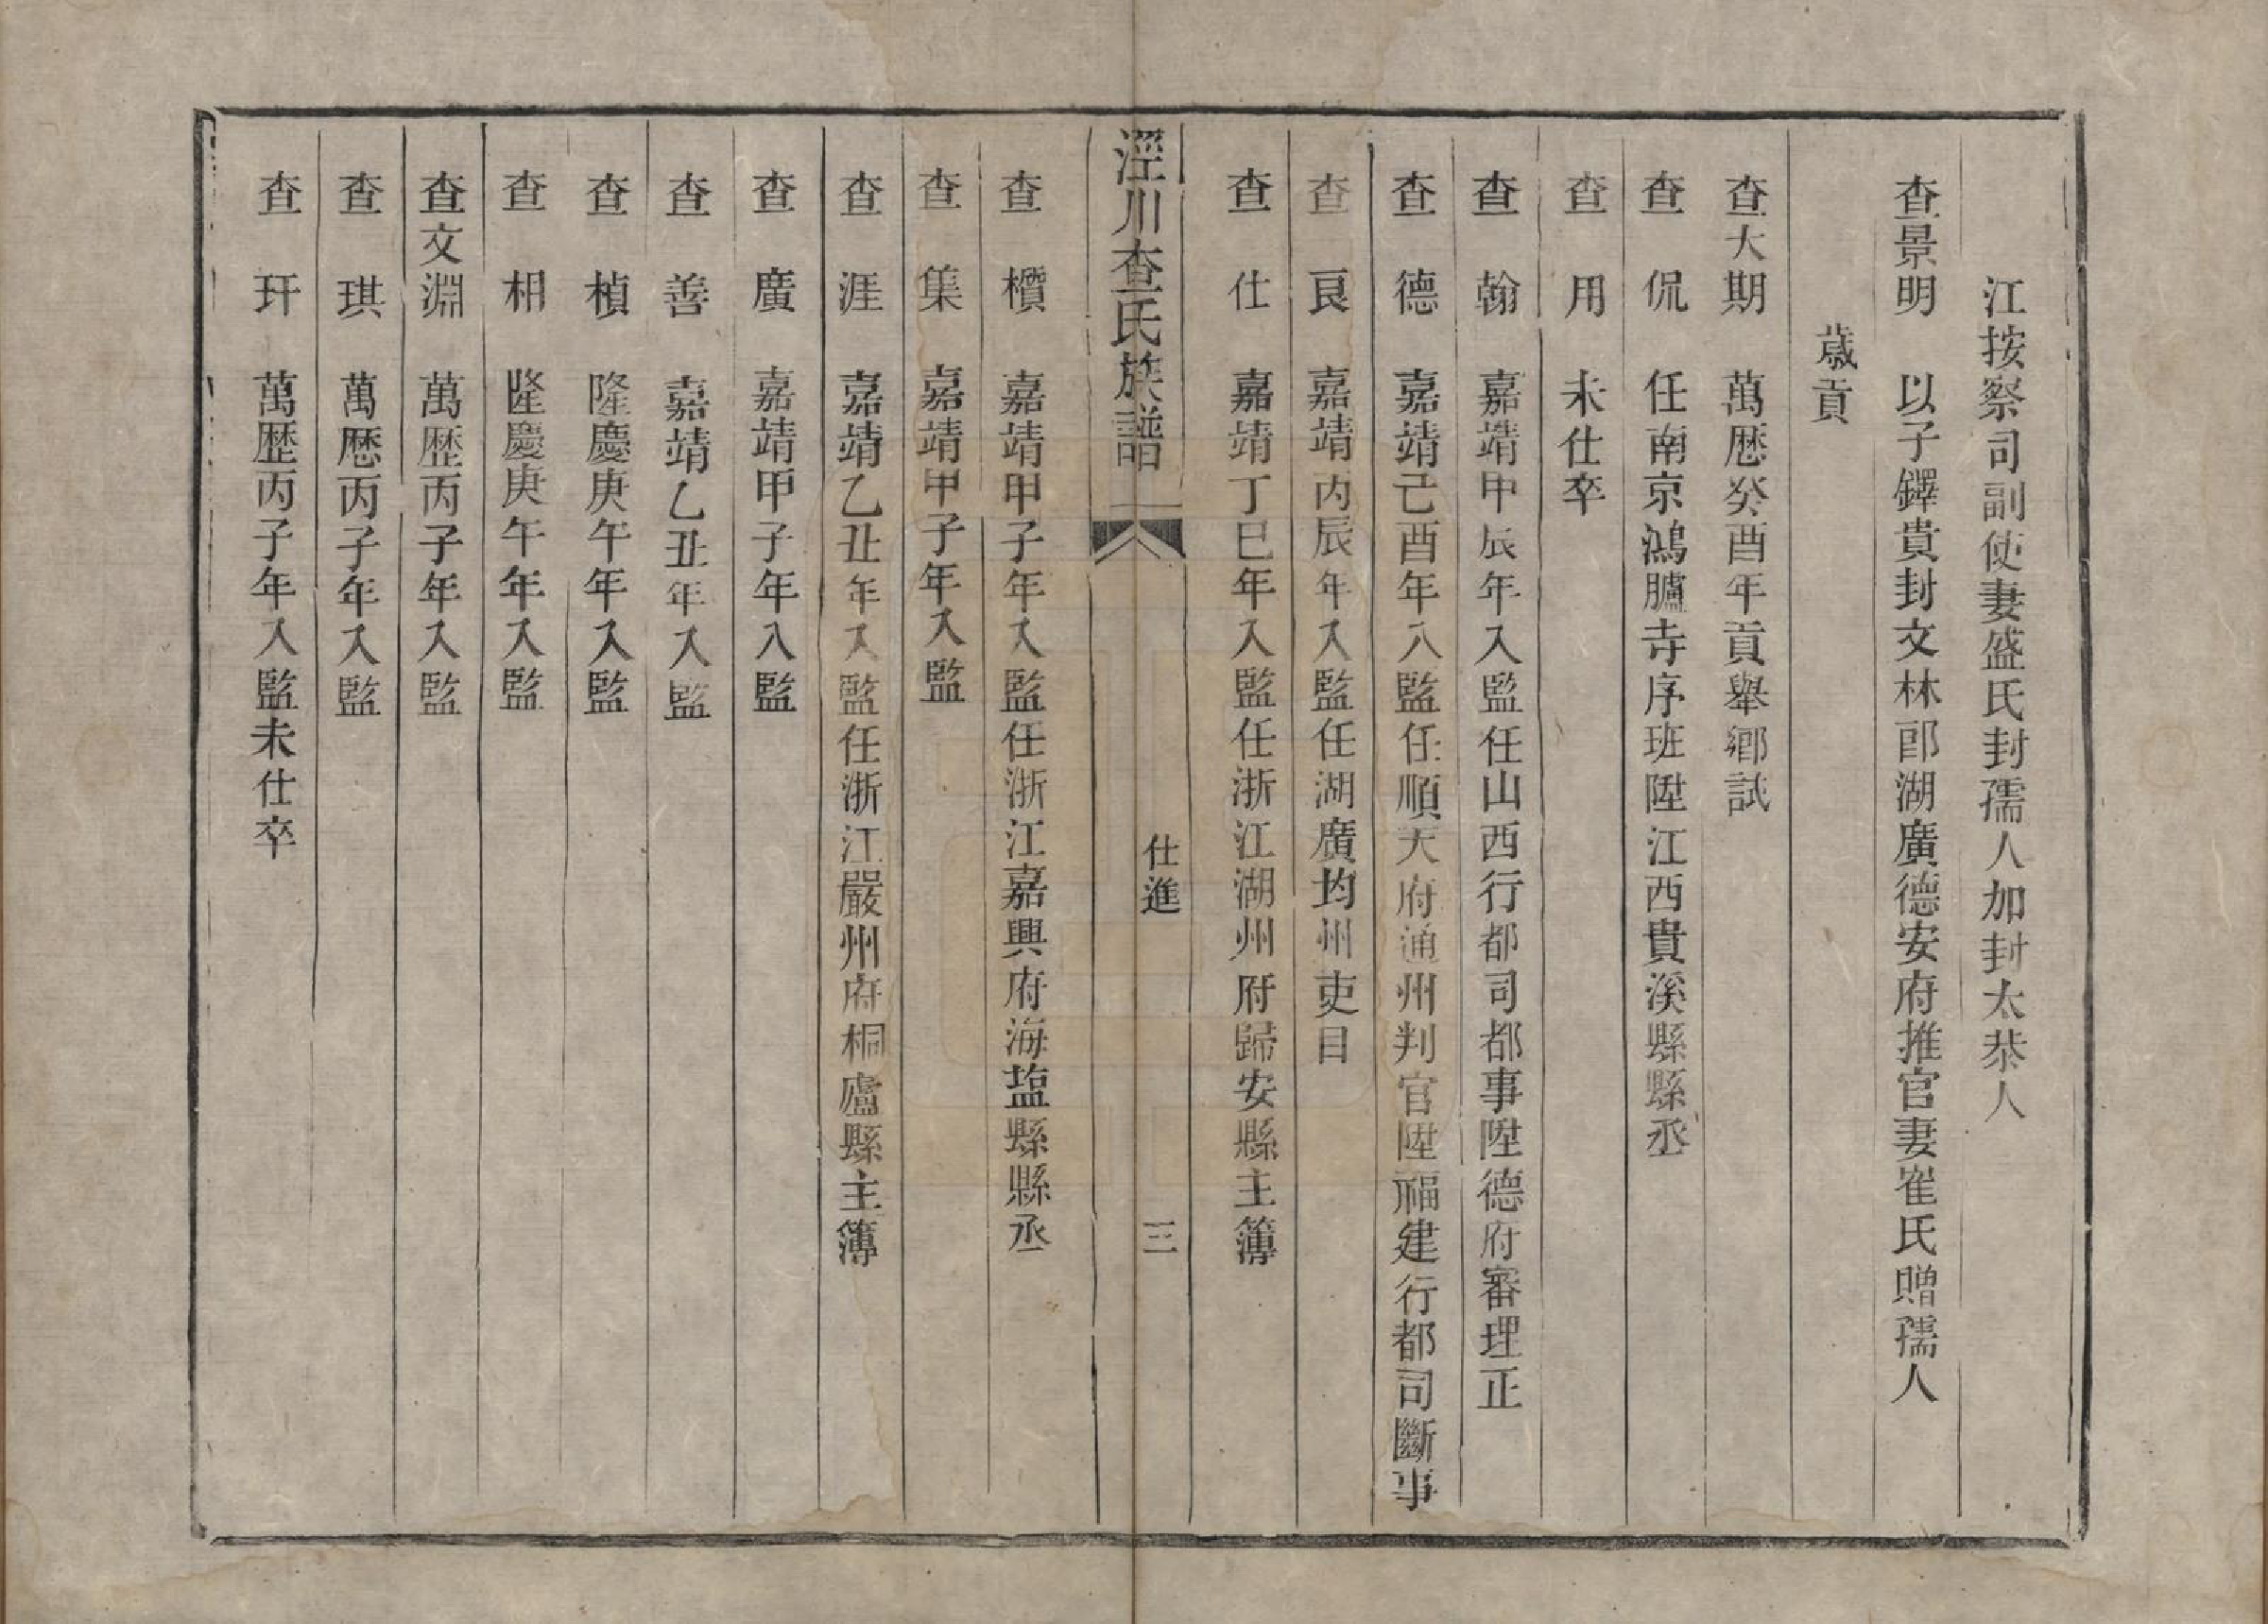 江按察司副使妻盛氏封孺人加封太恭人
查景明　以子鐸貴封文林郎湖廣德安府推官妻崔氏贈孺人
歲貢
查大期　萬歷癸酉年貢舉鄉試
查　侃　任南京鴻臚寺序班陞江西貴溪縣縣丞
查　用　未仕卒
查　翰　嘉靖甲辰年入監任山西行都司都事陞德府審理正
查　德　嘉靖己酉年入監任順天府通州判官陞福建行都司斷事
查　良　嘉靖丙辰年入監任湖廣均州吏目
查　仕　嘉靖丁巳年入監任浙江湖州府歸安縣主簿
涇川查氏族譜　仕進　三
查　櫝　嘉靖甲子年入監任浙江嘉興府海塩縣縣丞
查　集　嘉靖甲子年入監
查　涯　嘉靖乙丑年入監任浙江嚴州府桐廬縣主簿
查　廣　嘉靖甲子年入監
查　善　嘉靖乙丑年入監
查　楨　隆慶庚午年入監
查　相　隆慶庚午年入監
查文淵　萬歷丙子年入監
查　琪　萬歷丙子年入監
查　玕　萬歷丙子年入監未仕卒